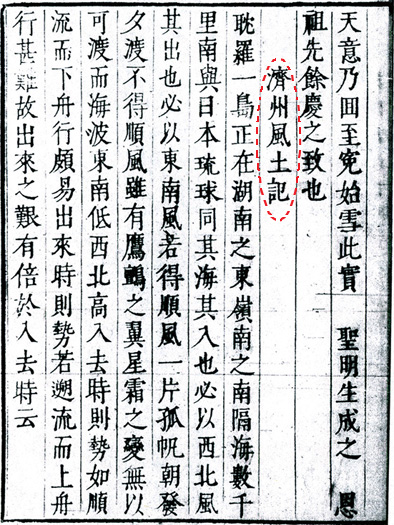 天意乃回至寃始雪此實 聖明生成之 恩
祖先餘慶之致也
濟州風土記
耽羅一島正在湖南之東嶺南之南隔海數千
里南與日本琉球同其海其入也必以西北風
其出也必以東南風若得順風一片孤帆朝發
夕渡不得順風雖有鷹鸇之翼星霜之變無以
可渡而海波東南低西北高入去時則勢如順
流而下舟行頗易出來時則勢若遡流而上舟
行甚難故出來之艱有倍於入去時云